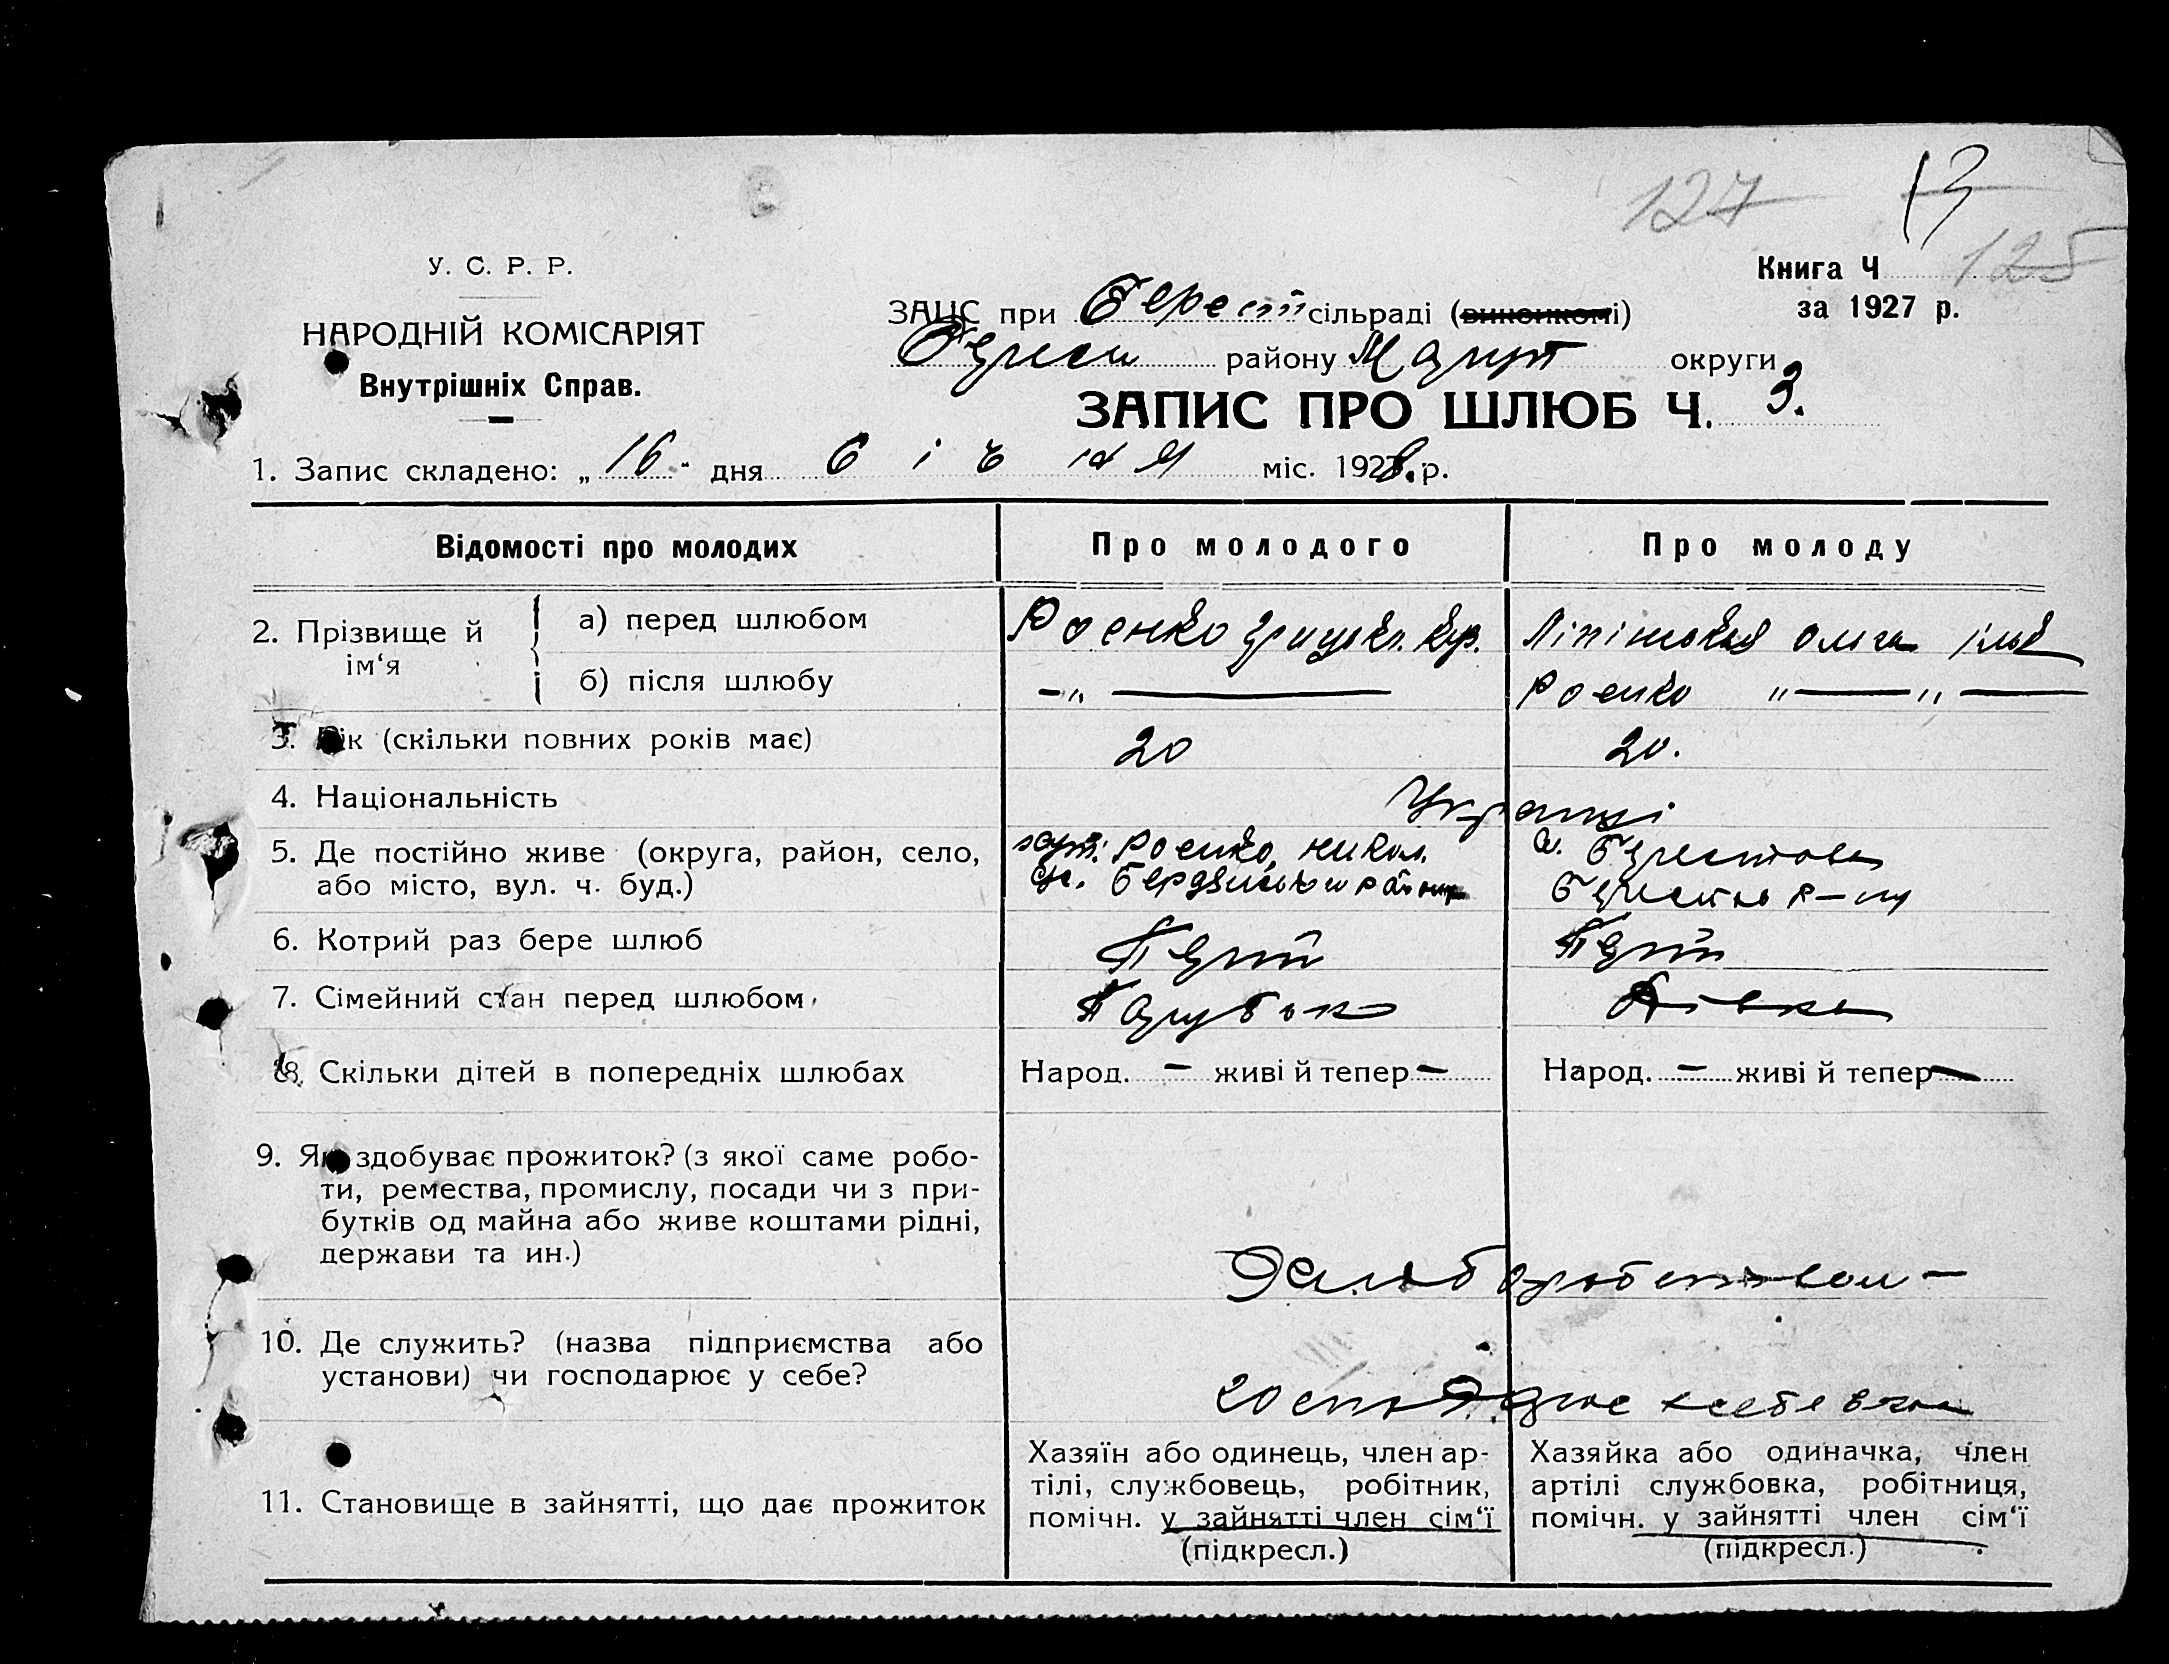 127 13
125
У. С. Р. Р.
НАРОДНІЙ КОМІСАРІЯТ
Внутрішніх Справ.
Книга Ч
за 1927 р.
ЗАЦС при Берест сільраді (виконкомі)
району Маріуп округи
ЗАПИС ПРО ШЛЮБ Ч. 3.
1. Запис складено: „ 16 " дня Січня міс. 1928. р.
Відомості про молодих Про молодого Про молоду
2. Прізвище й ім‘я
а) перед шлюбом Роєнко ольга
б) після шлюбу —„— Роєнко „ — „ —
3. Вік (скільки повних років має) 20 20.
4. Національність Українці
5. Де постійно живе (округа, район, село,
або місто, вул. ч. буд.)
хут. Роєнко,
с. Берестове
6. Котрий раз бере шлюб Перш Перш
7. Сімейний стан перед шлюбом Парубок Дівка
8. Скільки дітей в попередніх шлюбах Народ. — живі й тепер — Народ. — живі й тепер —
9. Як здобуває прожиток? (з якої саме робо-
ти, ремества, промислу, посади чи з при-
бутків од майна або живе коштами рідні,
держави та ин.)
10. Де служить? (назва підприємства або
установи) чи господарює у себе?
11. Становище в зайнятті, що дає прожиток
Хазяїн або одинець, член ар-
тілі, службовець, робітник,
помічн. у зайнятті член сім‘ї
(підкресл.)
Хазяйка або одиначка, член
артілі службовка, робітниця,
помічн. у зайнятті член сім‘ї
(підкресл.)